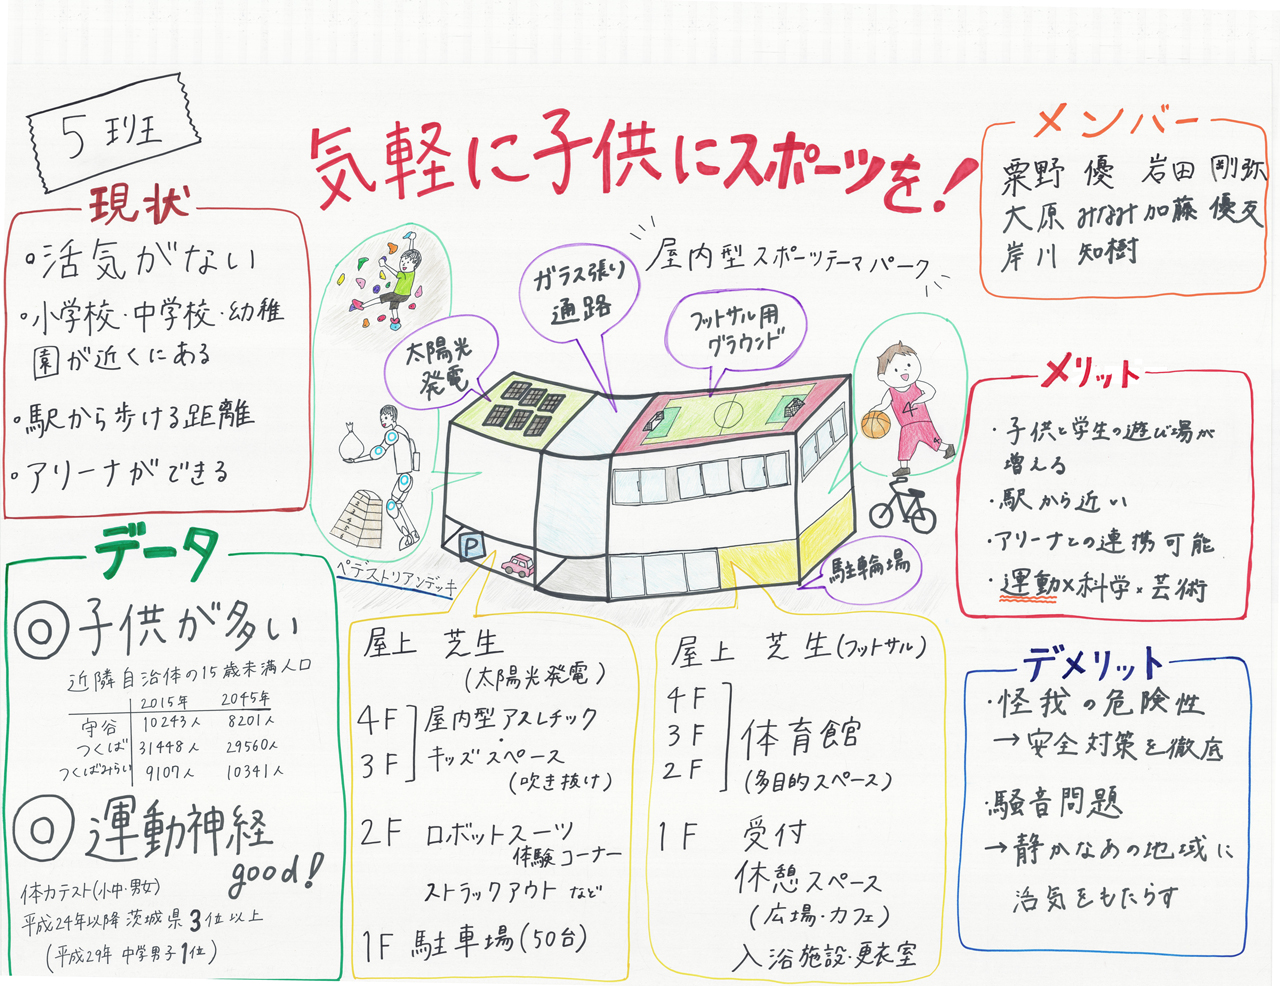 5班
気軽に子供にスポーツを!
屋内型スポーツテーマパーク
メンバー
粟野 優 岩田 剛弥
大原 みなみ 加藤 優友
岸川 知樹
現状
・活気がない
・小学校・中学校・幼稚
園が近くにある
・駅から歩ける距離
・アリーナができる
データ
◎子供が多い
近隣自治体の15歳未満人口
2015年 2045年
守谷 10243人 8201人
つくば 31448人 29560人
つくばみらい 9107人 10341人
◎運動神経
good!
体力テスト(小中・男女)
平成24年以降茨城県3位以上
(平成29年 中学男子1位)
太陽光
発電
ガラス張り
通路
フットサル用
グラウンド
4
P
ペデストリアンデッキ
駐輪場
屋上 芝生
(太陽光発電)
4F 屋内型アスレチック
・
3F キッズスペース
(吹き抜け)
2F ロボットスーツ
体験コーナー
ストラックアウト など
1F 駐車場(50台)
屋上 芝生(フットサル)
4F
3F 体育館
2F (多目的スペース)
1F 受付
休憩スペース
(広場・カフェ)
入浴施設・更衣室
メリット
・子供と学生の遊び場が
増える
・駅から近い
・アリーナとの連携可能
・運動×科学×芸術
デメリット
・怪我の危険性
→安全対策を徹底
・騒音問題
→静かなあの地域に
活気をもたらす